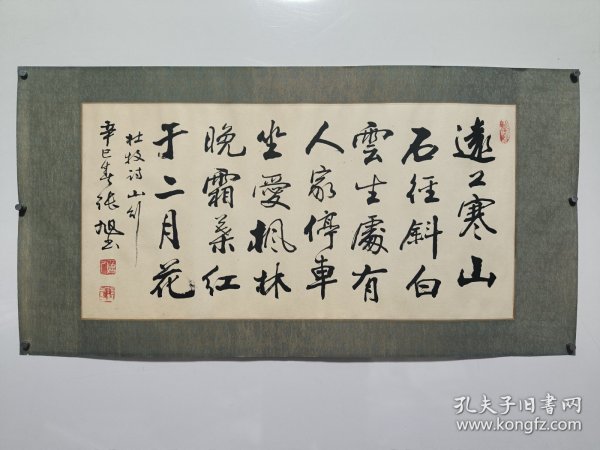 遠上寒山
石徑斜白
雲生處有
人家停車
坐愛楓林
晚霜葉紅
于二月花
杜牧诗山行
辛巳春张旭书
孔夫子旧书网
www.kongfz.com